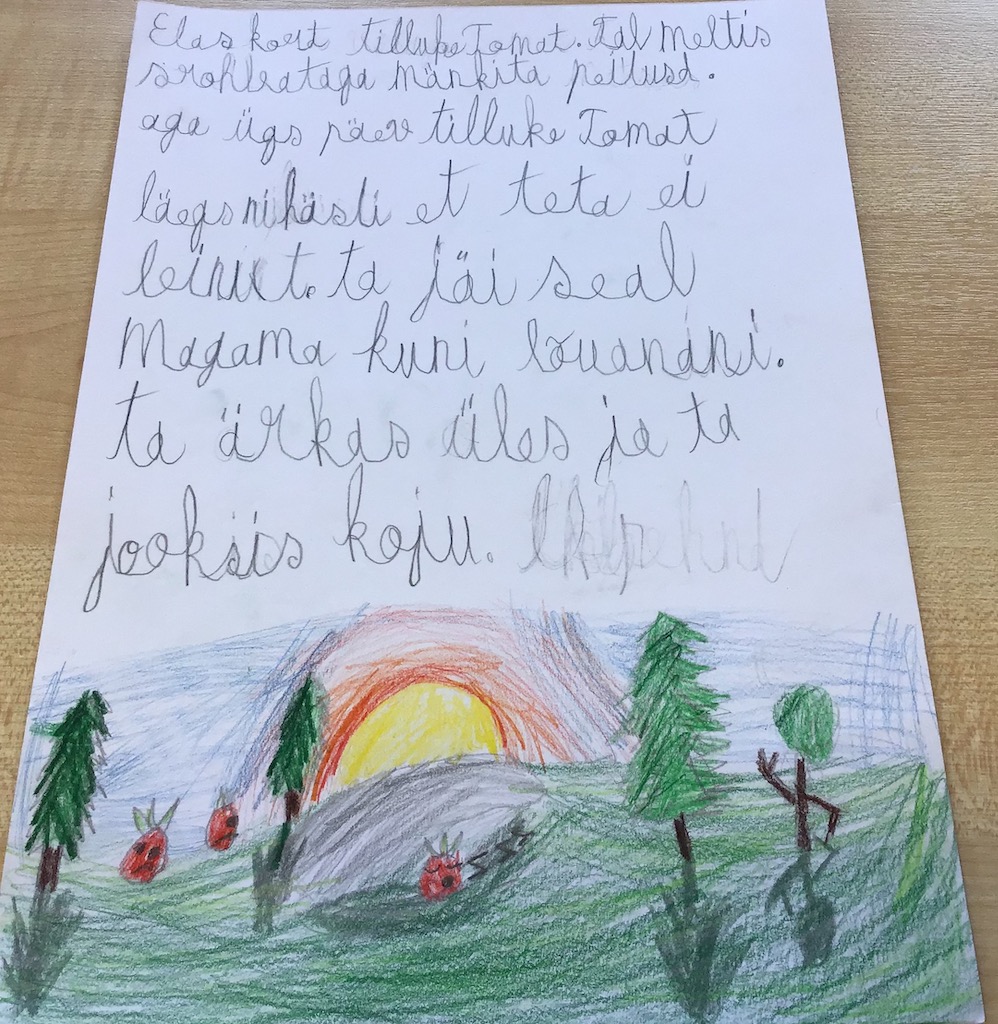 Elas kort tilluke Tomat. Tal meltis
srohkataga mänkita peitusd.
aga ügs päev tilluke Tomat
läegs ni hästi et teta ei
leinut. ta jäi seal
Magama kuni lõuanäni.
ta ärkas üles ja ta
jooksis koju.